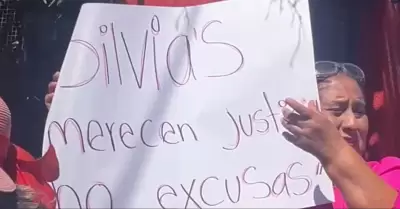 Silvia's
merecen justi
no excusas"